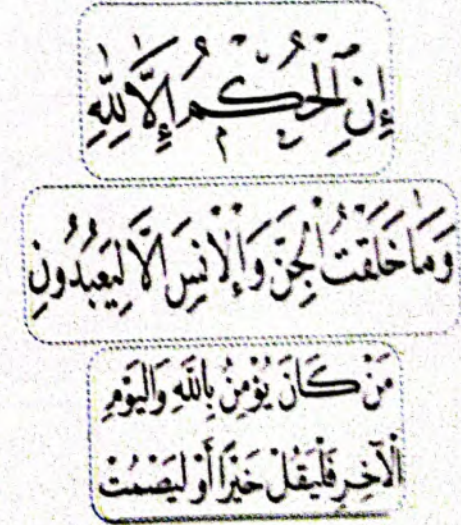 إِنِ الْحُكْمُ إِلَّا لِلَّهِ
وَمَا خَلَقْتُ الْجِنَّ وَالْإِنْسَ إِلَّا لِيَعْبُدُونِ
مَنْ كَانَ يُؤْمِنُ بِاللَّهِ وَالْيَوْمِ
الْآخِرِ فَلْيَقُلْ خَيْرًا أَوْ لِيَصْمُتْ